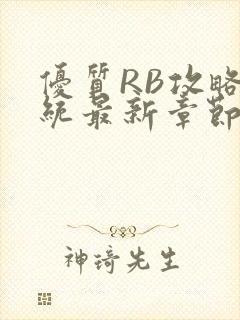 優質RB攻略
統最新章節
神琦先生